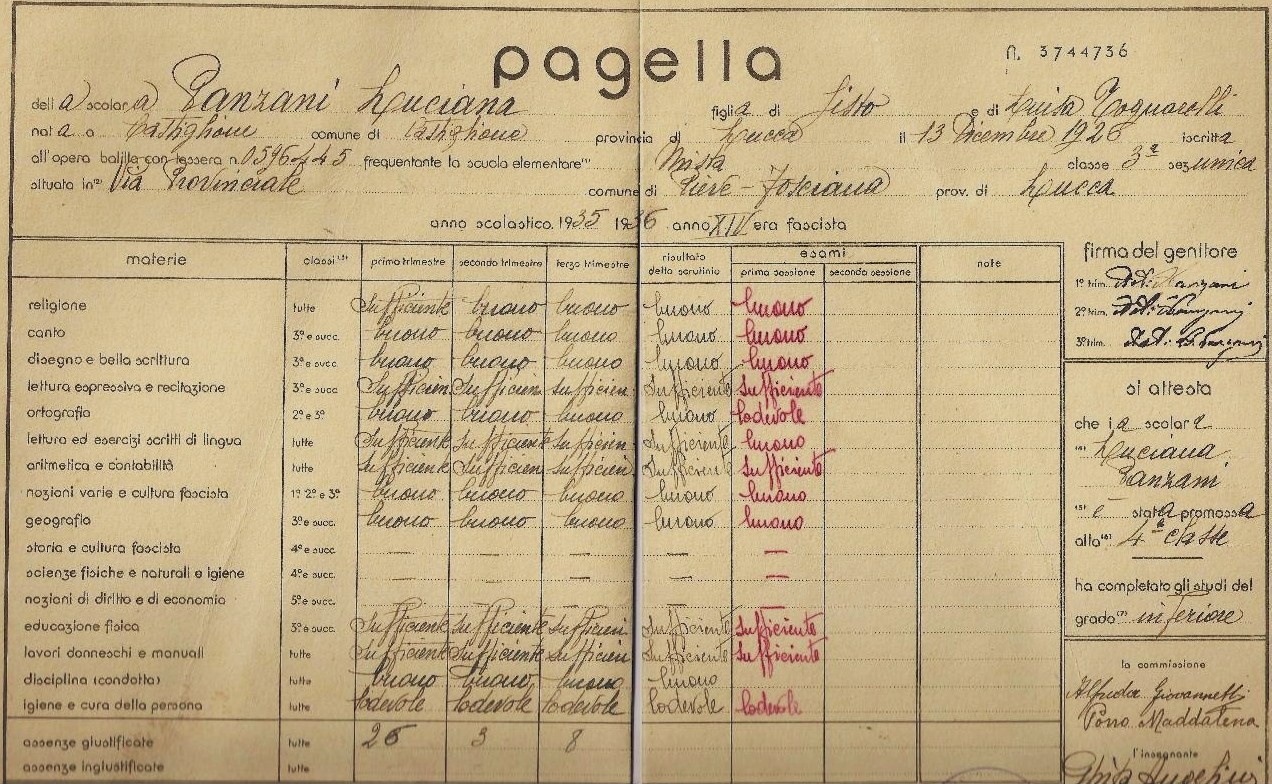 pagella
N. 3744736
della scolara Panzani Luciana figlia di Sisto e di Luisa
nata a Castiglione comune di Castiglione provincia di Lucca il 13 Dicembre 1926 iscritta
all'opera balilla con tessera n. frequentante la scuola elementare (1) Mista classe 3ª sez unica
situata in (2) Via Provinciale comune di Pieve-Fosciana prov. di Lucca
anno scolastico 1935 1936 anno XIV era fascista
materie classi (3) primo trimestre secondo trimestre terzo trimestre risultato dello scrutinio esami prima sessione seconda sessione note
religione tutte sufficiente buono buono buono buono
canto 3ª e succ. buono buono buono buono buono
disegno e bella scrittura 3ª e succ. buono buono buono buono buono
lettura espressiva e recitazione 3ª e succ. Sufficien Sufficien sufficien Sufficiente sufficiente
ortografia 2ª e 3ª buono buono buono buono lodevole
lettura ed esercizi scritti di lingua tutte sufficiente sufficiente sufficien Sufficiente buono
aritmetica e contabilità tutte sufficiente Sufficien sufficien Sufficiente sufficiente
nozioni varie e cultura fascista 1ª 2ª e 3ª buono buono buono buono buono
geografia 3ª e succ. buono buono buono buono buono
storia e cultura fascista 4ª e succ. — — — — —
scienze fisiche e naturali e igiene 4ª e succ. — — — — —
nozioni di diritto e di economia 5ª e succ.
educazione fisica 3ª e succ. Sufficiente sufficiente sufficien Sufficiente sufficiente
lavori donneschi e manuali tutte Sufficiente Sufficiente sufficien Sufficiente sufficiente
disciplina (condotta) tutte buono buono buono buono
igiene e cura della persona tutte lodevole lodevole lodevole lodevole lodevole
assenze giustificate tutte 3 8
assenze ingiustificate tutte
firma del genitore
1º trim.
2º trim.
3º trim.
si attesta
che la scolara
Luciana
Panzani
(5) è stata promossa
alla (6) 4ª classe
ha completato gli studi del
grado (7) inferiore
la commissione
Alfreda Giovannetti
Porro Maddalena
l'insegnante